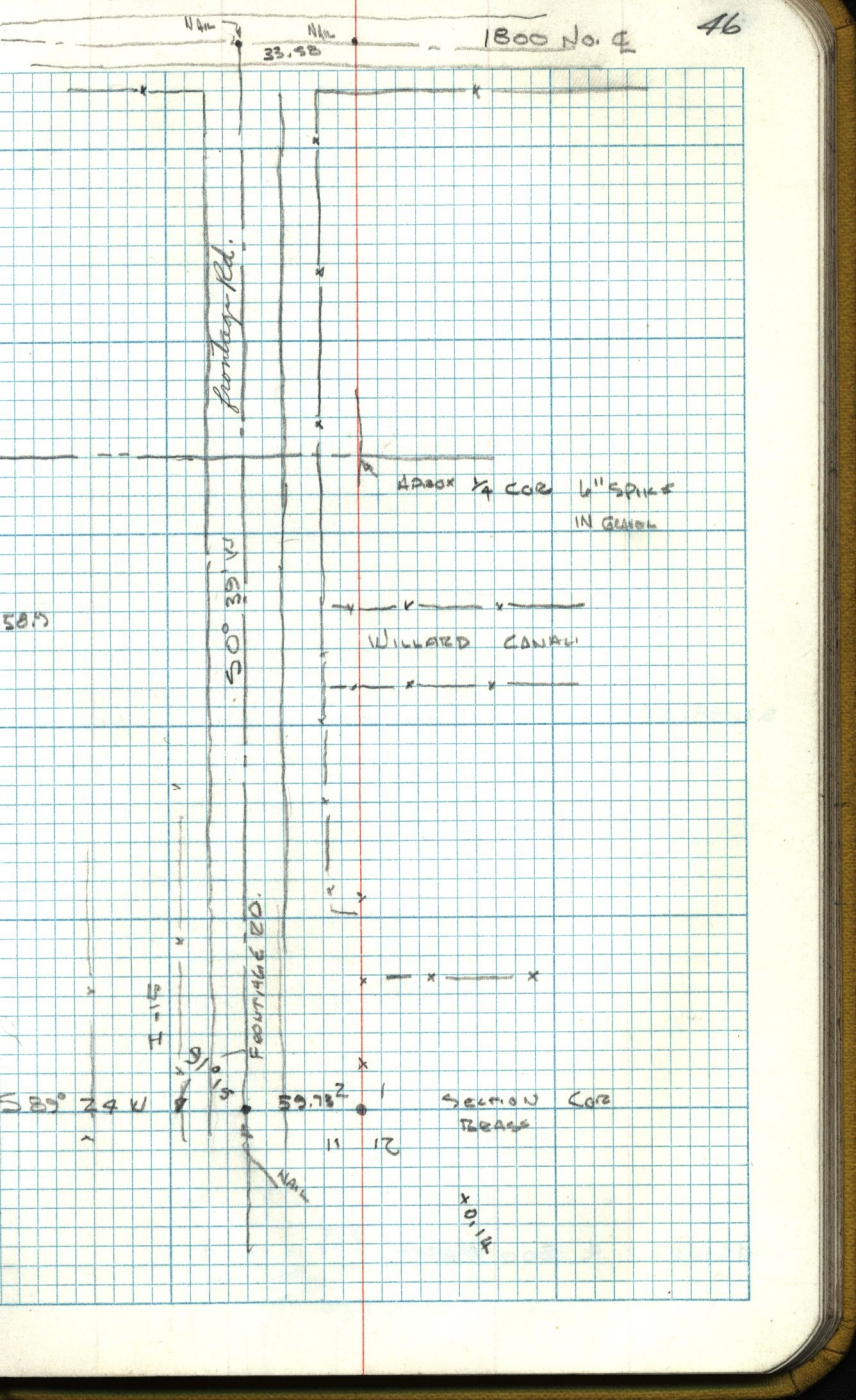 46
NAIL NAIL 1800 No. ℄
33.58
frontage Rd.
Aprox 1/4 COR 6" SPIKE
IN GRAVEL
S 0° 39' W
58.9
WILLARD CANAL
FRONTAGE RD.
I-15
91° 15'
S 89° 24 W 59.78 2 1 SECTION COR
BRASS
11 12
NAIL
x 0.14